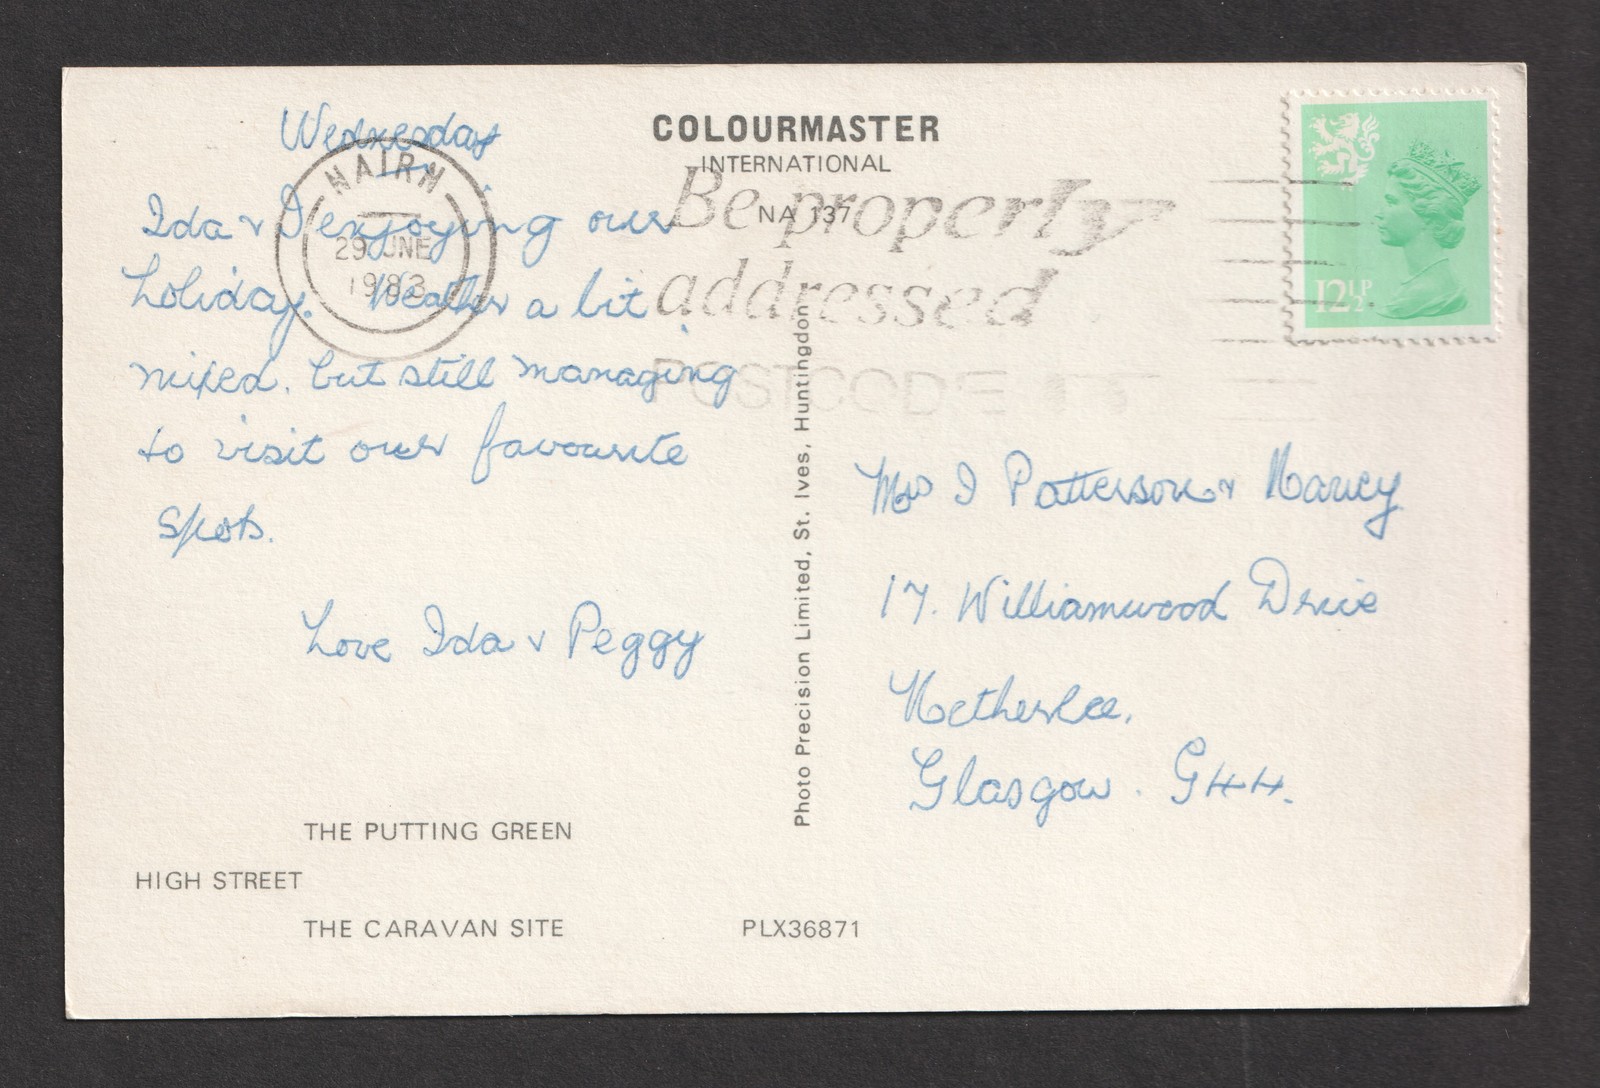 Wednesday
Ida & I enjoying our
holiday. Weather a bit
mixed. but still managing
to visit our favourite
spots.
Love Ida & Peggy
THE PUTTING GREEN
HIGH STREET
THE CARAVAN SITE
NAIRN
29 JNE
1983
COLOURMASTER
INTERNATIONAL
NA 137
Be properly
addressed
POSTCODE
Photo Precision Limited, St. Ives, Huntingdon
PLX36871
12½P
Mrs I Patterson & Nancy
17. Williamwood Drive
Netherlee.
Glasgow. G44.